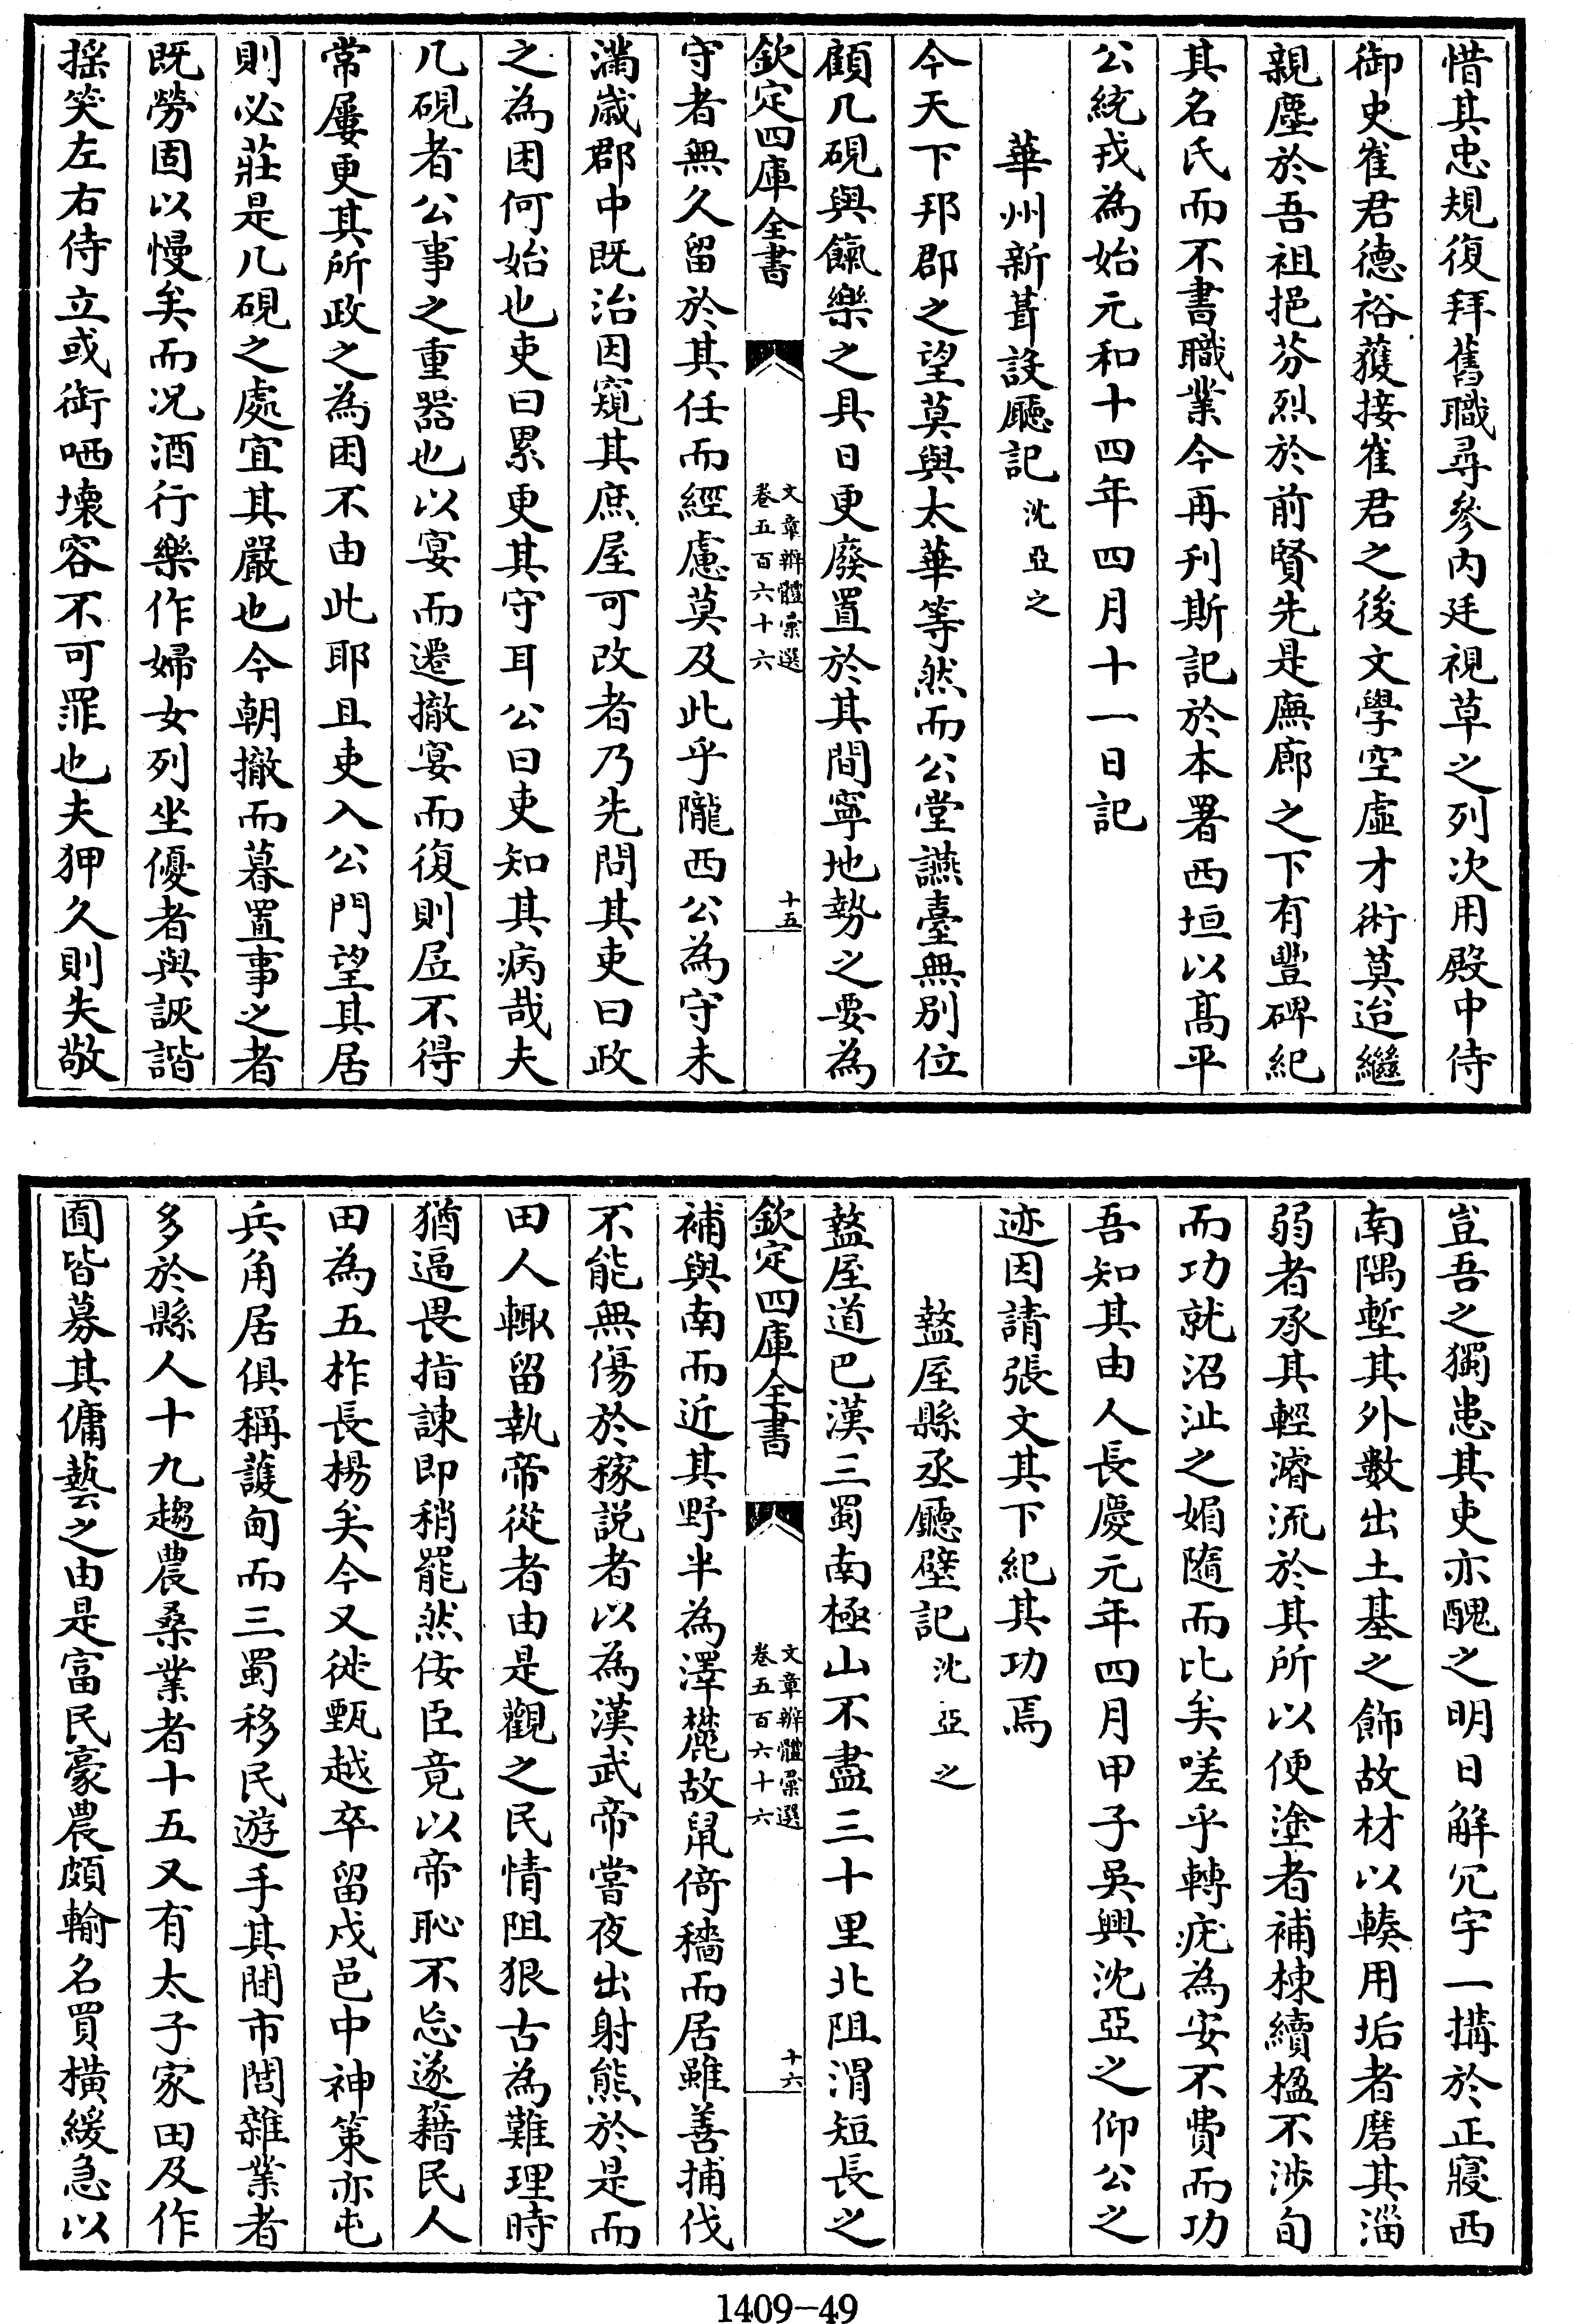 惜其忠規復拜舊職尋參内廷視草之列次用殿中侍
御史崔君德裕獲接崔君之後文學空虛才術莫迨繼
親塵於吾祖挹芬烈於前賢先是廡廊之下有豐碑紀
其名氏而不書職業今再刋斯記於本署西垣以髙平
公統戎為始元和十四年四月十一日記
華州新葺設㕔記沈亞之
今天下邦郡之望莫與太華等然而公堂讌臺無别位
顧几硯與餼樂之具日更廢置於其間寧地勢之要為
欽定四庫全書
文章辨體彚選
卷五百六十六
十五
守者無久留於其任而經慮莫及此乎隴西公為守未
滿歲郡中既治因窺其庶屋可改者乃先問其吏曰政
之為困何始也吏曰累更其守耳公曰吏知其病哉夫
几硯者公事之重器也以宴而遷撤宴而復則居不得
常屢更其所政之為困不由此耶且吏入公門望其居
則必莊是几硯之處宜其嚴也今朝撤而暮置事之者
既勞固以慢矣而况酒行樂作婦女列坐優者與詼諧
摇笑左右侍立或衒哂壊容不可罪也夫狎久則失敬
豈吾之獨患其吏亦醜之明日解冗宇一搆於正寢西
南隅塹其外數出土基之飾故材以輳用垢者磨其淄
弱者承其輕濬流於其所以便塗者補棟續楹不渉旬
而功就沼沚之媚隨而比矣嗟乎轉疣為安不費而功
吾知其由人長慶元年四月甲子吳興沈亞之仰公之
迹因請張文其下紀其功焉
盩厔縣丞㕔壁記沈亞之
盩厔道巴漢三蜀南極山不盡三十里北阻渭短長之
欽定四庫全書
文章辨體彚選
卷五百六十六
十六
補與南而近其野半為澤麓故鼠倚穡而居雖善捕伐
不能無傷於稼説者以為漢武帝嘗夜出射熊於是而
田人輙留執帝從者由是觀之民情阻狠古為難理時
猶逼畏指諫即稍罷然佞臣竟以帝恥不忘遂籍民人
田為五柞長楊矣今又徙甄越卒留戍邑中神策亦屯
兵角居俱稱護甸而三蜀移民遊手其閒市閭雜業者
多於縣人十九趨農桑業者十五又有太子家田及作
囿皆募其傭藝之由是富民豪農頗輸名買横緩急以
1409-49